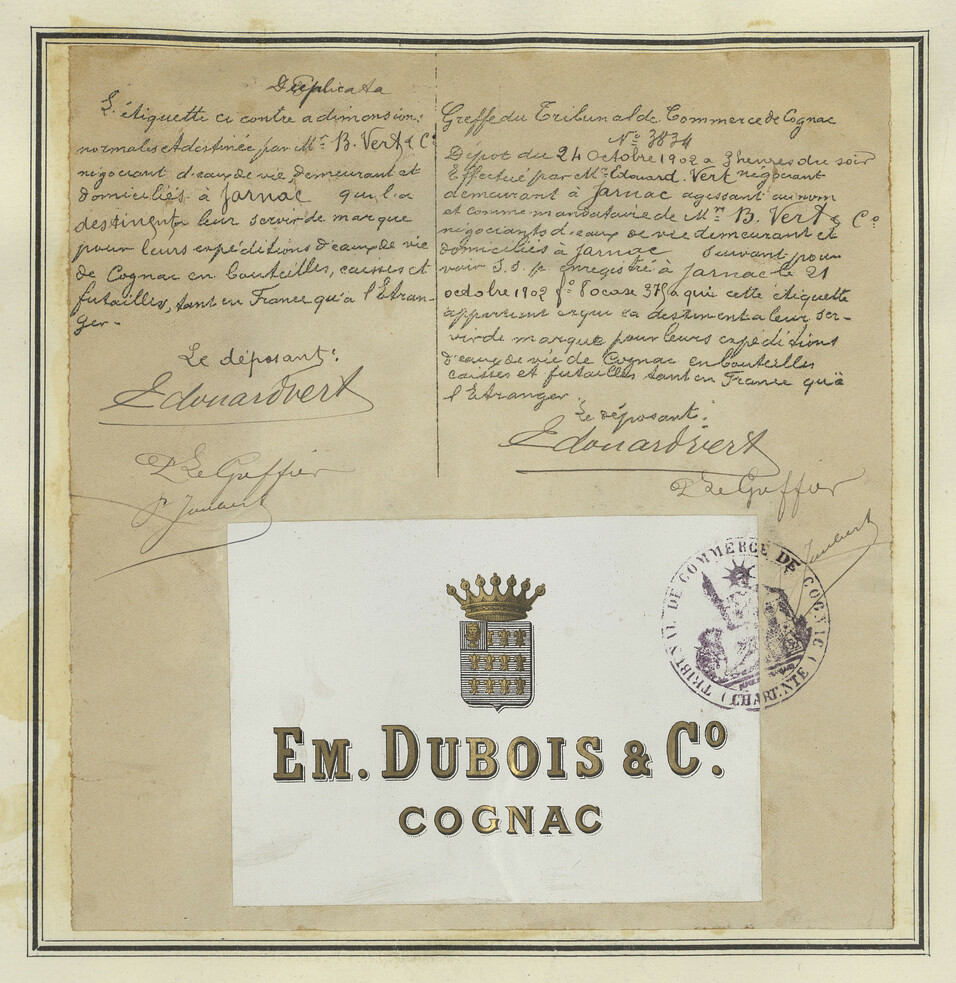 Duplicata
L'étiquette ci contre a dimensions
normales et destinée par Mr. B. Vert & Co
négociant d'eaux de vie, demeurant et
domiciliés à Jarnac qui la
destinent a leur servir de marque
pour leurs expéditions d'eaux de vie
de Cognac en bouteilles, caisses et
futailles, tant en France qu'à l'Etran-
ger.-
Le déposant:
Edouard Vert
P. Le Greffier
P. Jaulart
Greffe du Tribunal de Commerce de Cognac
No 3834
Dépot du 24 Octobre 1902 a 3 heures du soir
Effectué par Mr. Edouard. Vert négociant
demeurant à Jarnac agissant au nom
et comme mandataire de Mr. B. Vert & Co
négociants d'eaux de vie demeurant et
domiciliés à Jarnac Suivant pou-
voir S.S.p. enregistré à Jarnac le 21
octobre 1902 fo case 375 a qui cette étiquette
appartient et qui la destinent a leur ser-
vir de marque pour leurs expéditions
d'eaux de vie de Cognac en bouteilles
caisses et futailles tant en France qu'à
l'Etranger.
Le déposant:
Edouard Vert
P. Le Greffier
TRIBUNAL DE COMMERCE DE COGNAC (CHARENTE)
EM. DUBOIS & Co.
COGNAC